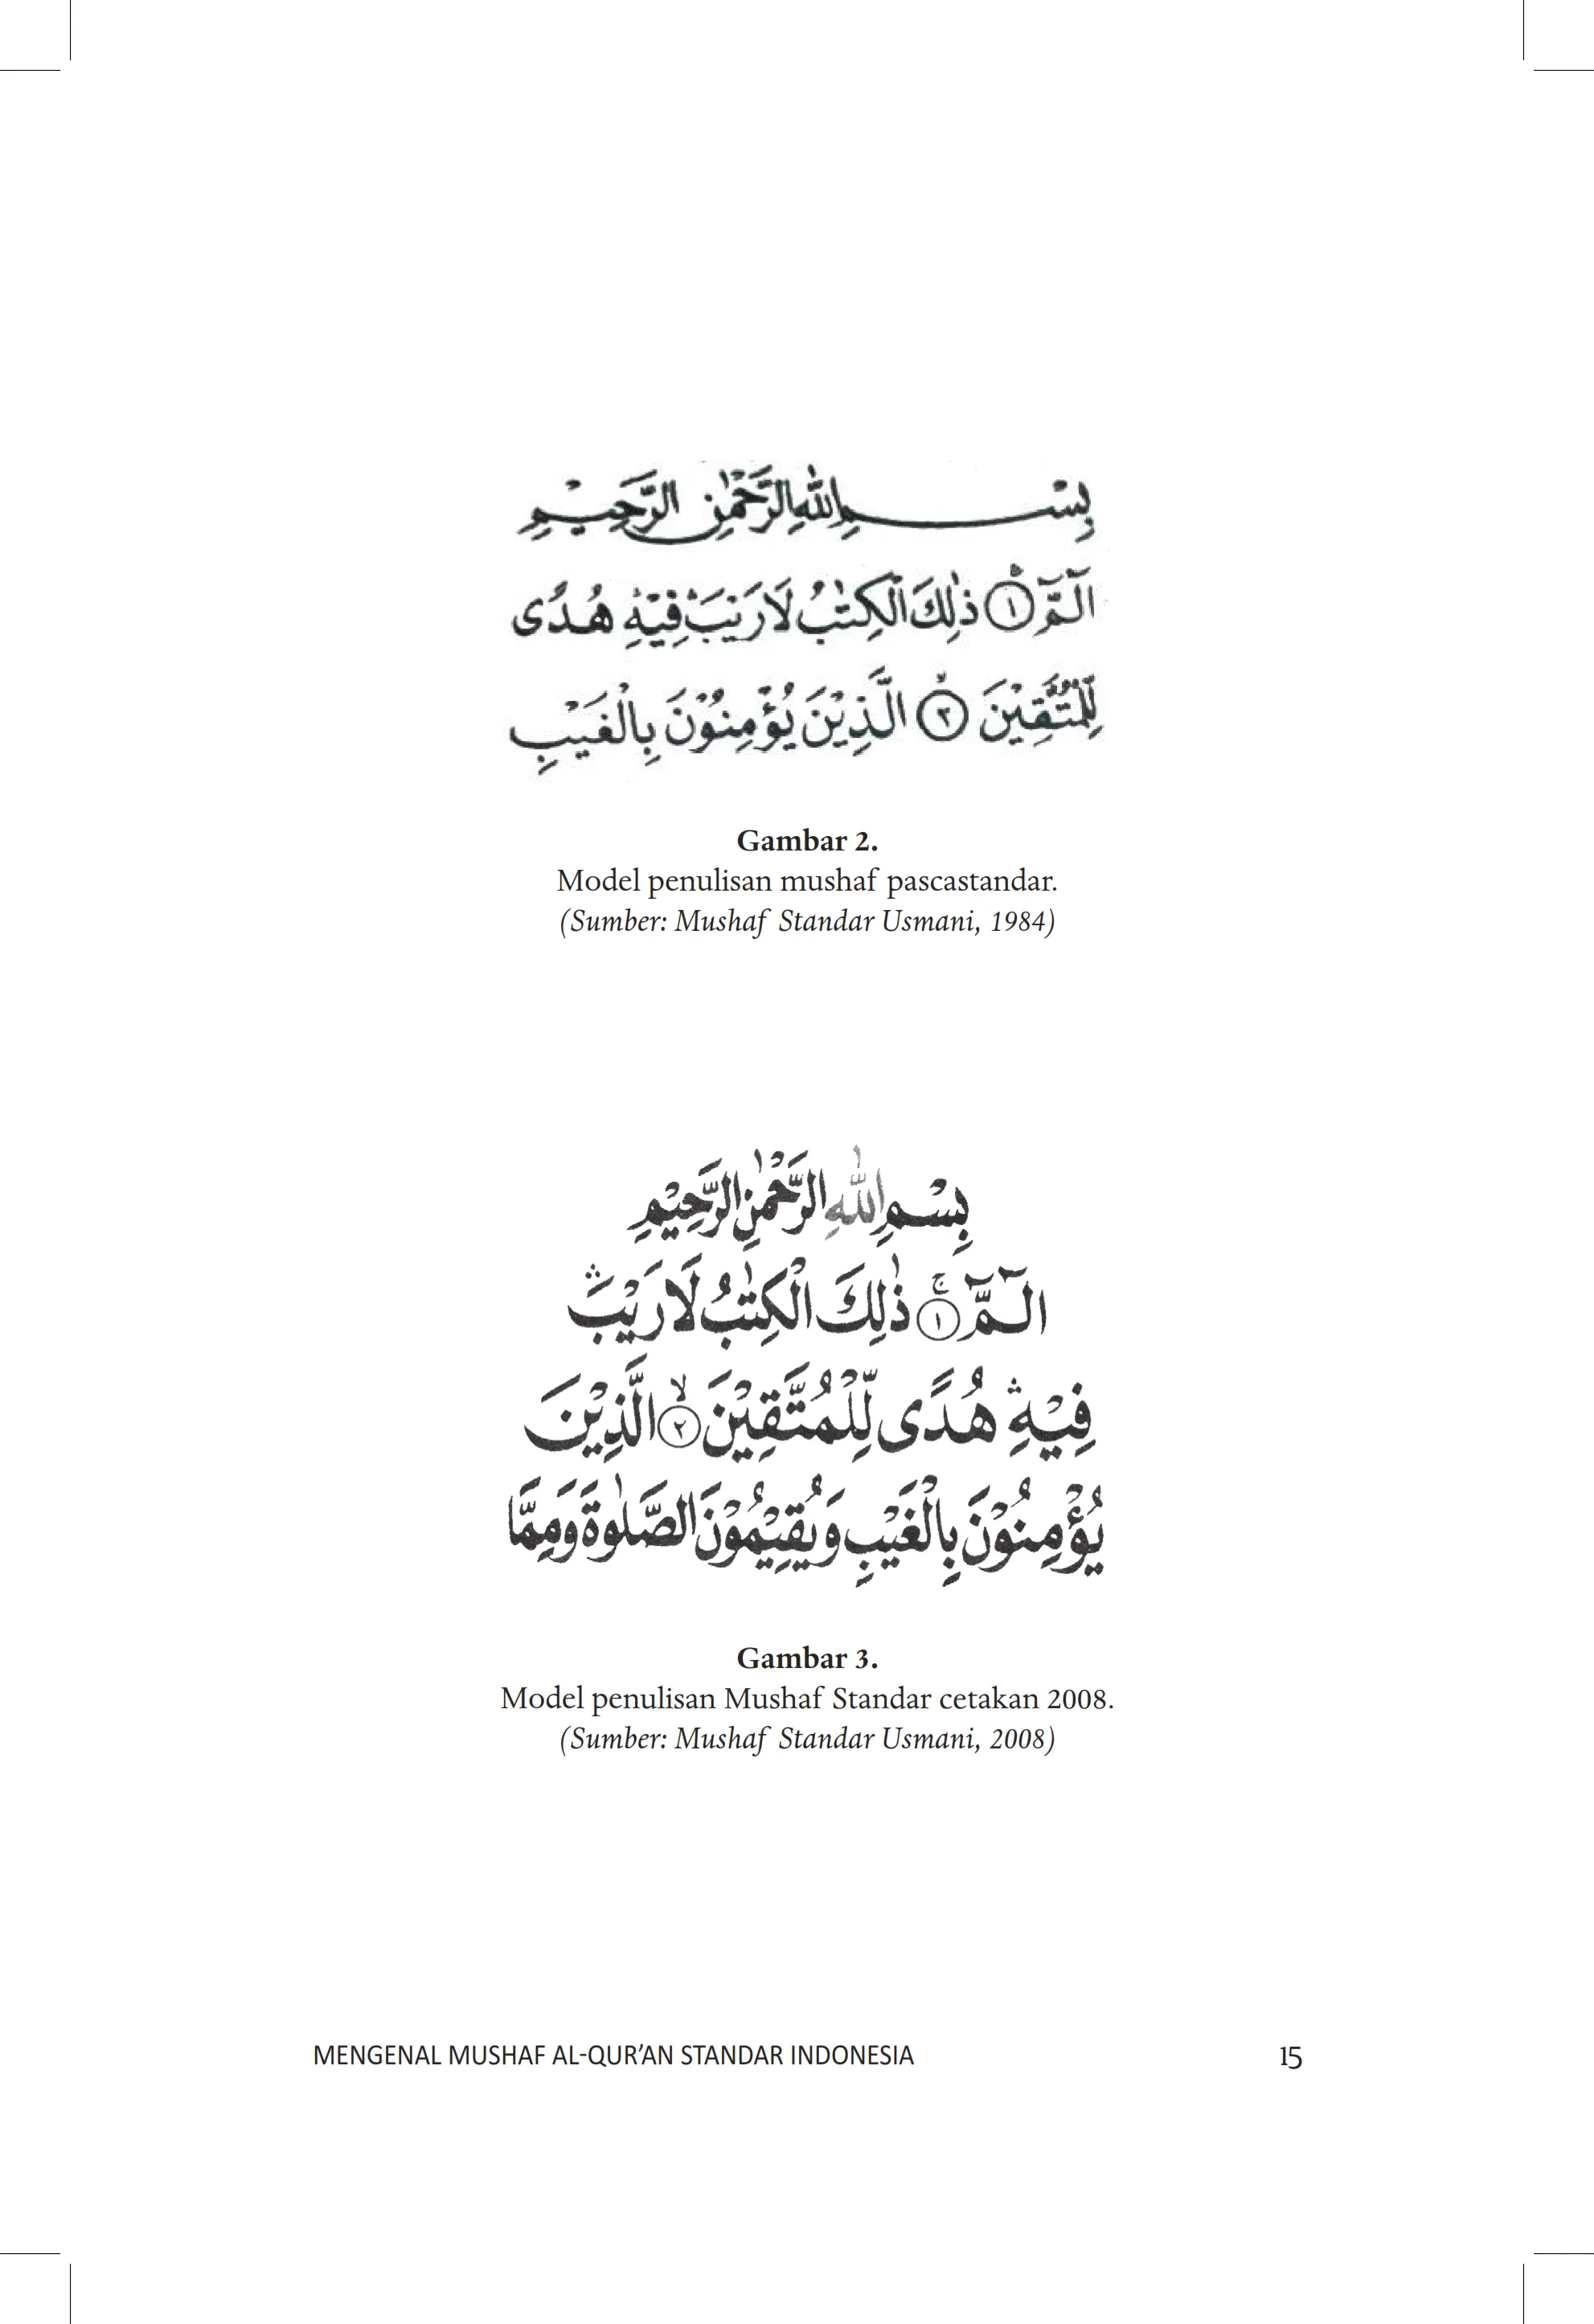 بِسْمِ اللّٰهِ الرَّحْمٰنِ الرَّحِيْمِ
الۤمّۤ ۝١ ذٰلِكَ الْكِتٰبُ لَارَيْبَ ۛ فِيْهِ ۛ هُدًى
لِّلْمُتَّقِيْنَ ۝٢ الَّذِيْنَ يُؤْمِنُوْنَ بِالْغَيْبِ
Gambar 2.
Model penulisan mushaf pascastandar.
(Sumber: Mushaf Standar Usmani, 1984)
بِسْمِ اللّٰهِ الرَّحْمٰنِ الرَّحِيْمِ
الۤمّۤ ۚ ۝١ ذٰلِكَ الْكِتٰبُ لَارَيْبَ ۛ
فِيْهِ ۛ هُدًى لِّلْمُتَّقِيْنَ ۙ ۝٢ الَّذِيْنَ
يُؤْمِنُوْنَ بِالْغَيْبِ وَيُقِيْمُوْنَ الصَّلٰوةَ وَمِمَّا
Gambar 3.
Model penulisan Mushaf Standar cetakan 2008.
(Sumber: Mushaf Standar Usmani, 2008)
MENGENAL MUSHAF AL-QUR’AN STANDAR INDONESIA 15